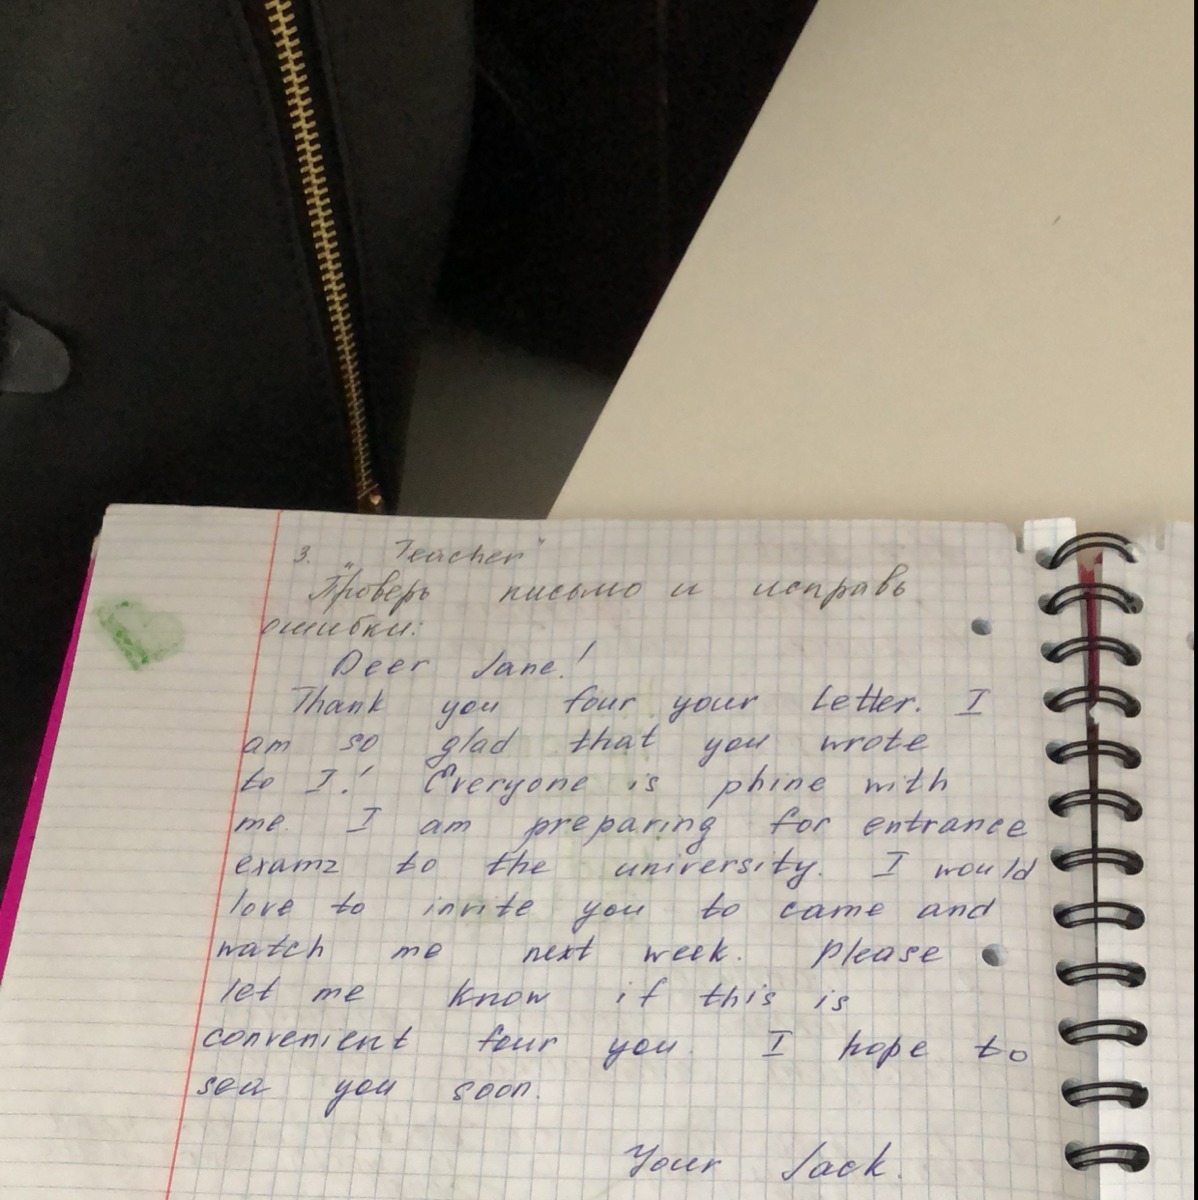 3. "Teacher"
Проверь письмо и исправь
ошибки:
Deer Jane!
Thank you four your letter. I
am so glad that you wrote
to I! Everyone is phine with
me. I am preparing for entrance
examz to the university. I would
love to invite you to came and
watch me next week. Please
let me know if this is
convenient four you. I hope to
sea you soon.
Your Jack.